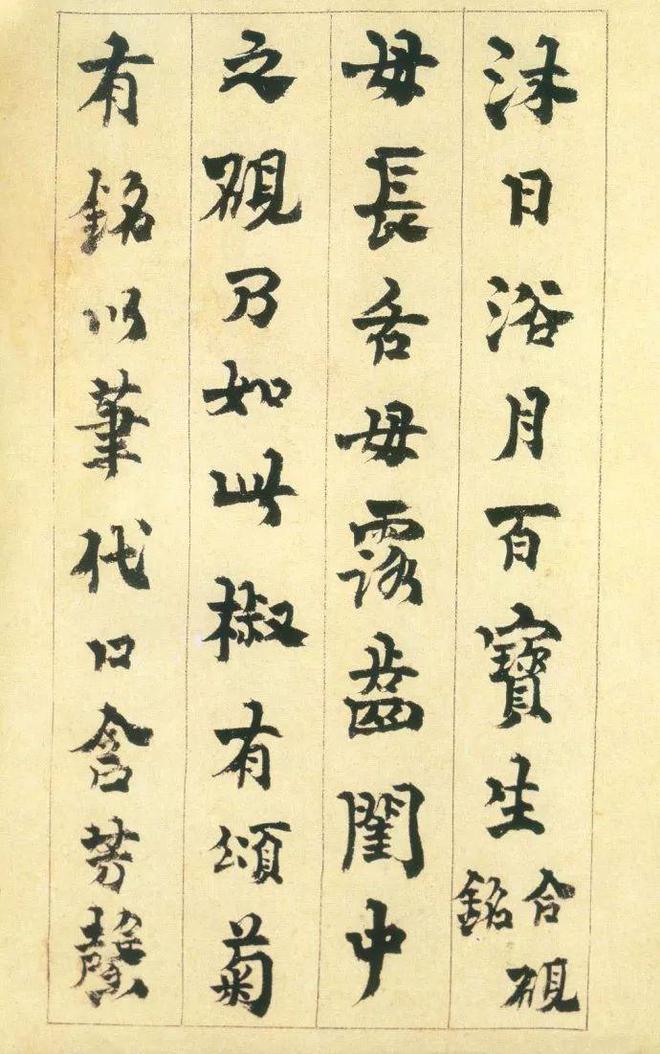 沐日浴月百寶生合硯銘
毋長舌毋露齒閨中
之硯乃如此椒有頌菊
有銘以筆代口含芳馨